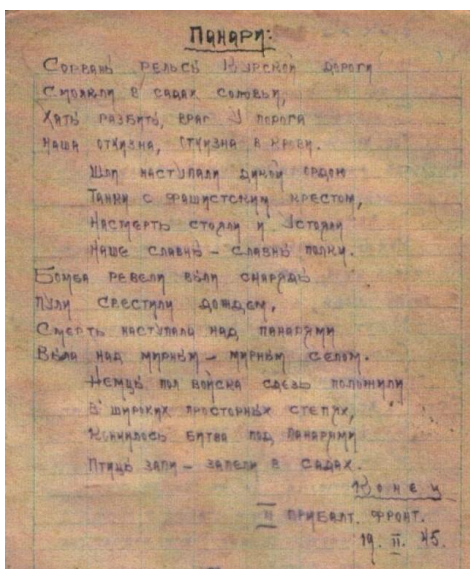 Панари:
Сорвань рельсь Курской дороги
Смолкли в садах соловьи,
Хать разбить, враг у порога
Наша отчизна, отчизна в крови.
Шли наступали дикой ордой
Танки с фашистским крестом,
Насмерть стояли и устояли
Наше славнь - славнь полки.
Бомба ревели выли снарядь
Пули свестили дождем,
Смерть наступала над панарями
Выла над мирньм - мирньм селом.
Немць пол войска сдезь положили
В широких просторньх степях,
Кончилось битва под Панарями
Птиць запи - запели в садах.
Конец
II Прибалт. фронт.
19. II. 45.